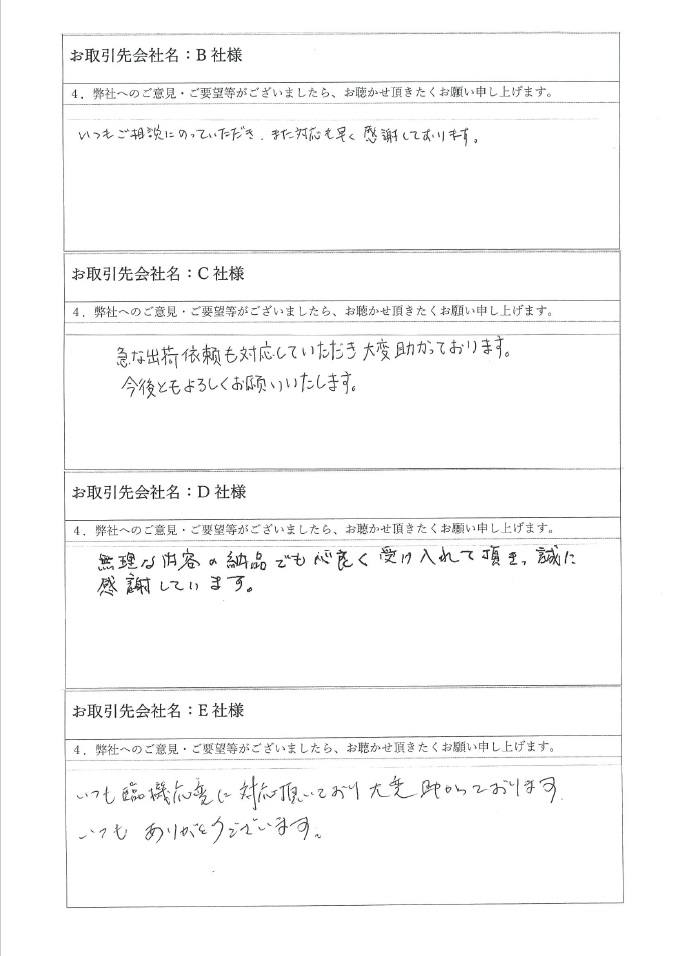 お取引先会社名：B 社様
4．弊社へのご意見・ご要望等がございましたら、お聴かせ頂きたくお願い申し上げます。
いつもご相談にのっていただき、また対応も早く感謝しております。
お取引先会社名：C 社様
4．弊社へのご意見・ご要望等がございましたら、お聴かせ頂きたくお願い申し上げます。
急な出荷依頼も対応していただき大変助かっております。
今後ともよろしくお願いいたします。
お取引先会社名：D 社様
4．弊社へのご意見・ご要望等がございましたら、お聴かせ頂きたくお願い申し上げます。
無理な内容の納品でも心良く受け入れて頂き、誠に
感謝しています。
お取引先会社名：E 社様
4．弊社へのご意見・ご要望等がございましたら、お聴かせ頂きたくお願い申し上げます。
いつも臨機応変に対応頂いており大変助かっております。
いつもありがとうございます。